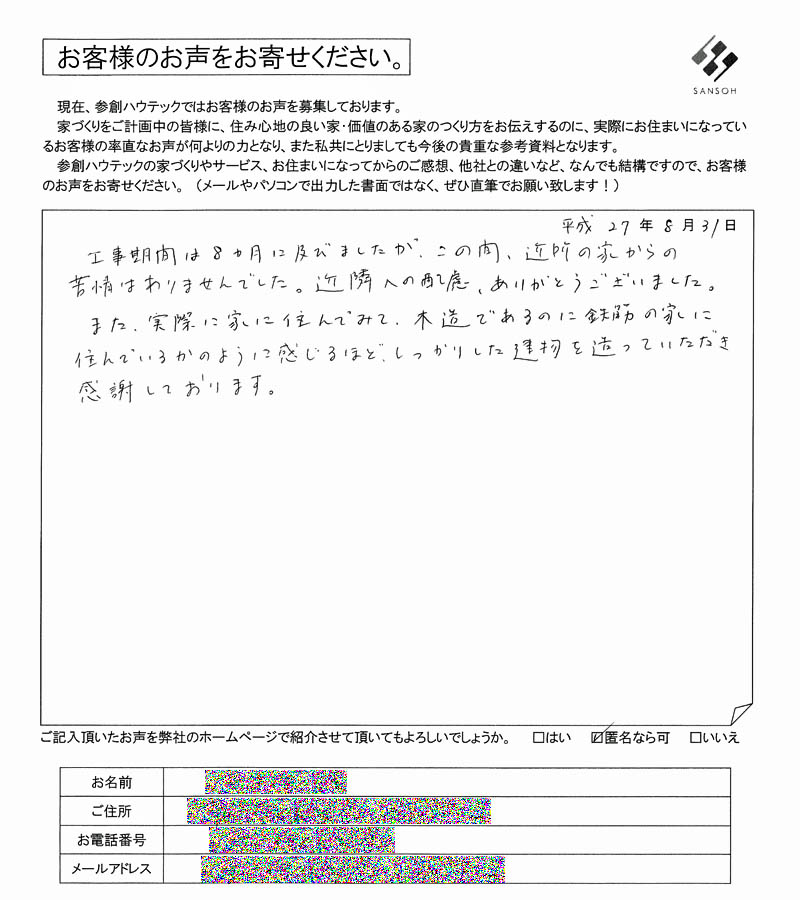 お客様のお声をお寄せください。
SANSOH
現在、参創ハウテックではお客様のお声を募集しております。
家づくりをご計画中の皆様に、住み心地の良い家・価値のある家のつくり方をお伝えするのに、実際にお住まいになってい
るお客様の率直なお声が何よりの力となり、また私共にとりましても今後の貴重な参考資料となります。
参創ハウテックの家づくりやサービス、お住まいになってからのご感想、他社との違いなど、なんでも結構ですので、お客様
のお声をお寄せください。（メールやパソコンで出力した書面ではなく、ぜひ直筆でお願い致します！）
平成 27 年 8 月 31 日
工事期間は8ヵ月に及びましたが、この間、近所の家からの
苦情はありませんでした。近隣への配慮、ありがとうございました。
また、実際に家に住んでみて、木造であるのに鉄筋の家に
住んでいるかのように感じるほど、しっかりした建物を造っていただき
感謝しております。
ご記入頂いたお声を弊社のホームページで紹介させて頂いてもよろしいでしょうか。 □はい ☑匿名なら可 □いいえ
お名前
ご住所
お電話番号
メールアドレス